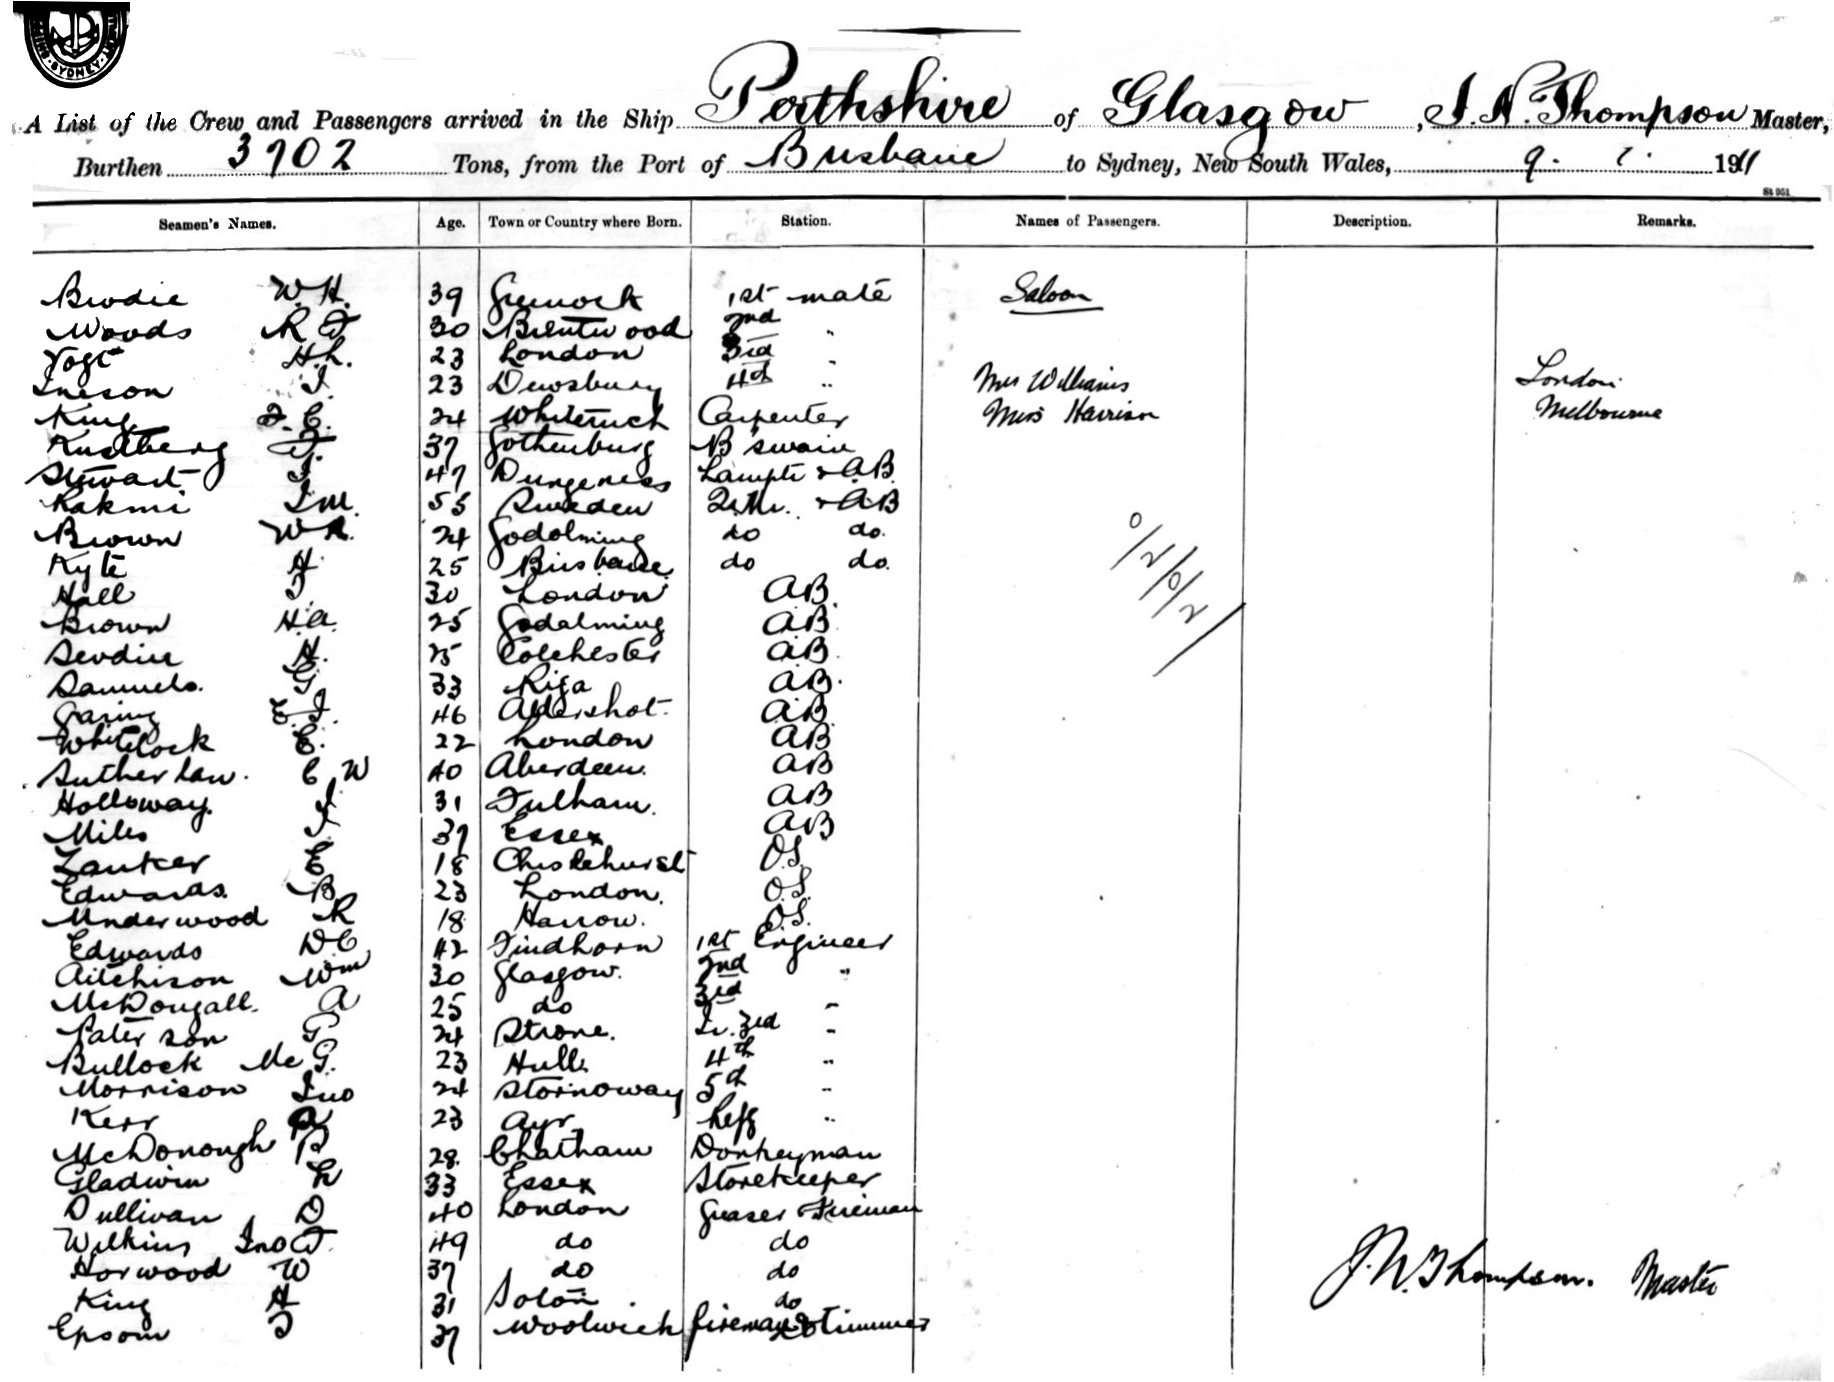 SYDNEY
A List of the Crew and Passengers arrived in the Ship Perthshire of Glasgow, J. N. Thompson Master,
Burthen 3702 Tons, from the Port of Brisbane to Sydney, New South Wales, 9. 1. 1911
St 951
Seamen's Names. Age. Town or Country where Born. Station. Names of Passengers. Description. Remarks.
Brodie W. H. 39 Greenock 1st mate Saloon
Woods R F 30 Brentwood 2nd "
Vogt H. L. 23 London 3rd "
Ineson J. 23 Dewsbury 4th " Mrs Williams London
King F. C. 24 Carpenter Miss Harrison Melbourne
37 Gothenburg B'swain
Stewart J. 47 Dungeness Lamps & AB
Jm. 55 Sweden Qr. Mr. & AB
Brown W R. 24 Godalming do do.
Kyte H 25 Brisbane do do.
Hall J 30 London AB.
Brown H. A. 25 Godalming AB
H. 25 Colchester AB
Samuels. G 33 Riga AB.
Garing E. J. 46 Aldershot. AB
Whitelock C. 22 London AB
Sutherlan. C W 40 Aberdeen. AB
Holloway. J 31 Fulham. AB
Miles J 37 Essex AB
E 18 Chislehurst O.S.
Edwards. B 23 London. O.S.
Underwood R 18 Harrow. O.S.
Edwards D C 42 Findhorn 1st Engineer
Aitchison Wm 30 Glasgow. 2nd "
McDougall. A 25 do 3rd "
Paterson G 24 Strone. Jr. 3rd "
Bullock Mc G. 23 Hull 4th "
Morrison Jno 24 Stornoway 5th "
Kerr A 23 Ayr Refg "
McDonough P 28. Chatham Donkeyman
Gladwin L 33 Essex Storekeeper
Sullivan D 40 London Greaser & Fireman
Wilkins Jno F. 49 do do
Horwood W 37 do do
King H 31 do
Epsom J 37 Woolwich fireman & trimmer
0/2/0/2/
J. N. Thompson. Master